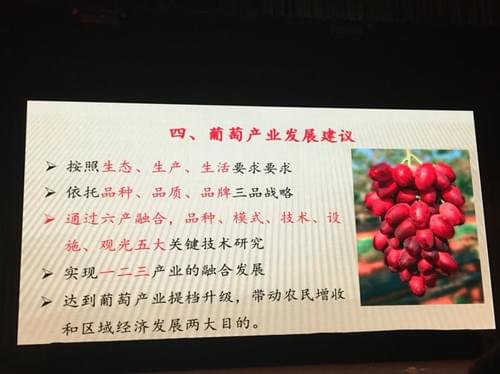 四、葡萄产业发展建议
➢ 按照生态、生产、生活要求要求
➢ 依托品种、品质、品牌三品战略
➢ 通过六产融合，品种、模式、技术、设
施、观光五大关键技术研究
➢ 实现一二三产业的融合发展
➢ 达到葡萄产业提档升级，带动农民增收
和区域经济发展两大目的。